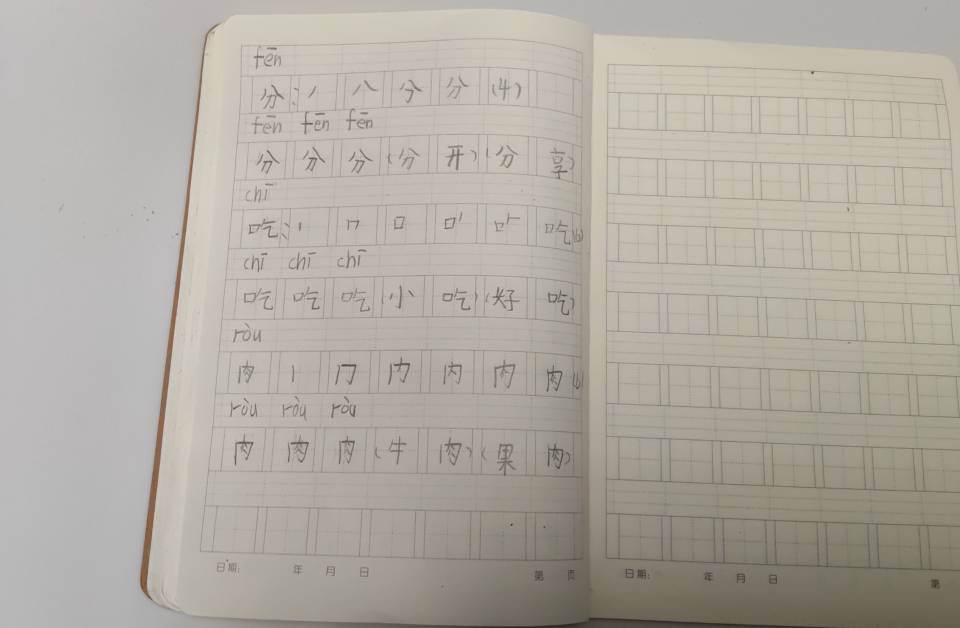 fēn
分：丿 八 分 分 (4)
fēn fēn fēn
分 分 分 (分 开) (分 享)
chī
吃：丨 𠃍 口 吃 (6)
chī chī chī
吃 吃 吃 (小 吃) (好 吃)
ròu
肉 丨 冂 内 内 肉 肉 (6)
ròu ròu ròu
肉 肉 肉 (牛 肉) (果 肉)
日期: 年 月 日 第 页
日期: 年 月 日 第